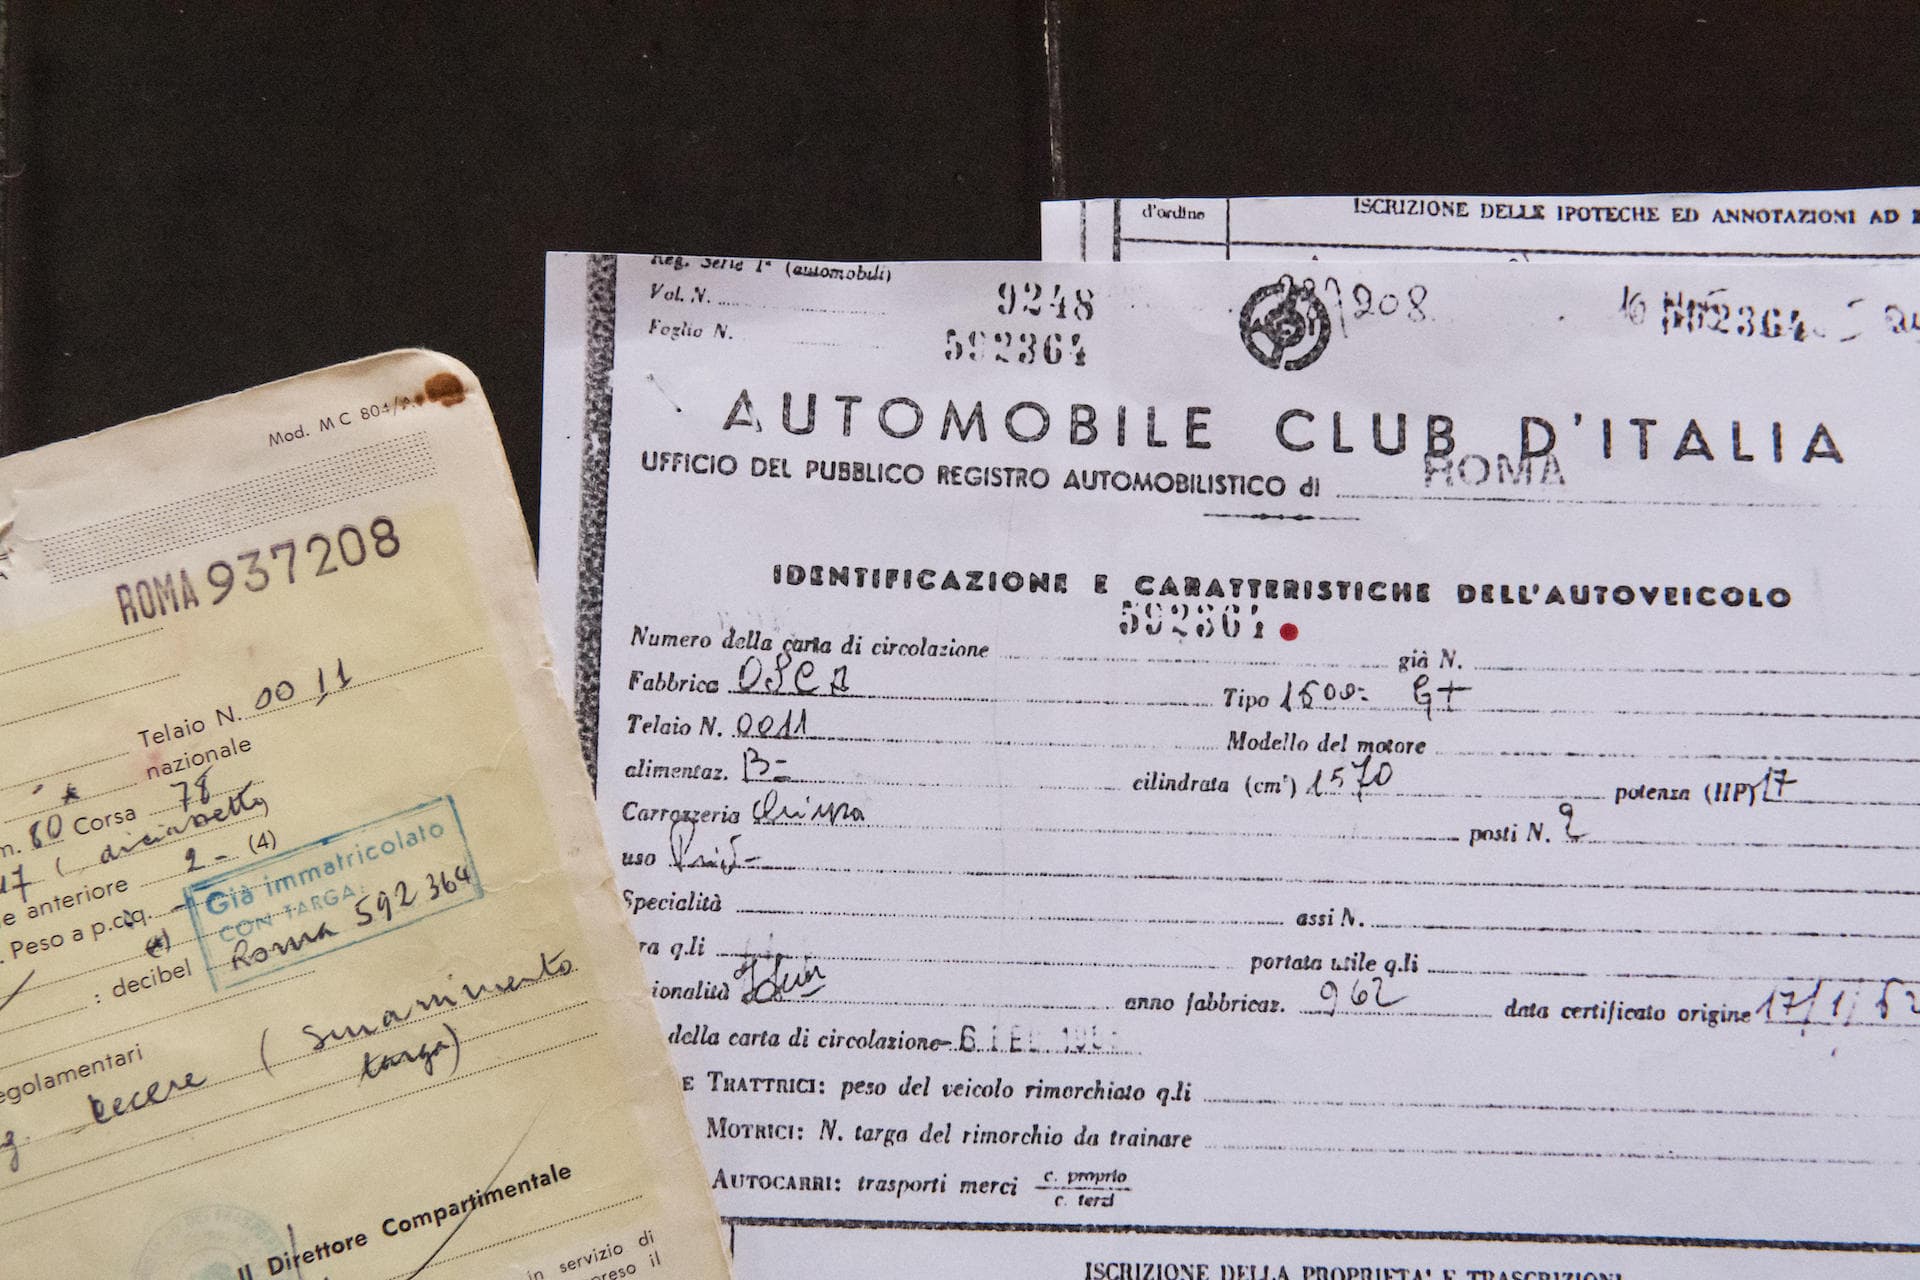 Mod. MC 804/A
ROMA 937208
Telaio N. 0011
nazionale
m. 80 Corsa 78
17 (diciassette)
e anteriore 2 - (4)
Peso a p.c.q.
Già immatricolato
CON TARGA:
Roma 592364
: decibel
egolamentari
(smarrimento
targa)
Il Direttore Compartimentale
in servizio di
preso il
d'ordine
ISCRIZIONE DELLE IPOTECHE ED ANNOTAZIONI AD
Reg. Serie Iª (automobili)
Vol. N. 9248
Foglio N. 592364
208
592364
AUTOMOBILE CLUB D'ITALIA
UFFICIO DEL PUBBLICO REGISTRO AUTOMOBILISTICO di ROMA
IDENTIFICAZIONE E CARATTERISTICHE DELL'AUTOVEICOLO
Numero della carta di circolazione 592364 già N.
Fabbrica OSCA Tipo 1600- GT
Telaio N. 0011 Modello del motore
alimentaz. B- cilindrata (cm³) 1570 potenza (HP) 17
Carrozzeria posti N. 2
uso Priv-
Specialità assi N.
ra q.li portata utile q.li
ionalità anno fabbricaz. 962 data certificato origine 17/1/62
della carta di circolazione 6 FEB.
E TRATTRICI: peso del veicolo rimorchiato q.li
MOTRICI: N. targa del rimorchio da trainare
AUTOCARRI: trasporti merci c. proprio
c. terzi
ISCRIZIONE DELLA PROPRIETA' E TRASCRIZIONI